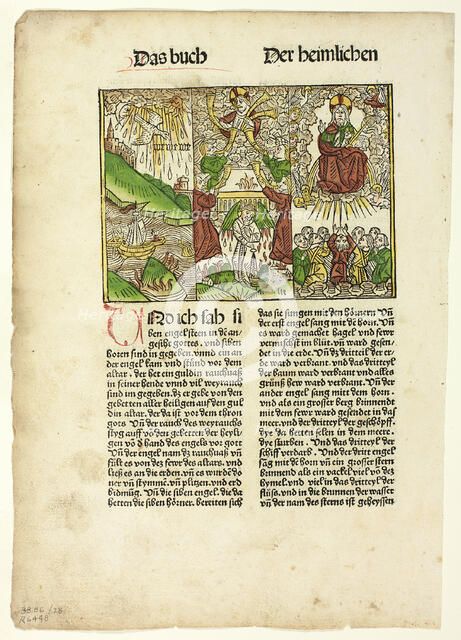 Das buch
Der heimlichen
ve ve ve
VNd ich sah si
ben engel steen in de an⸗
gesiht gottes. vnd siben
horen sind in gegeben. vnnd ein an
der engel kam vnd stund vor dem
altar. der het ein guldin rauchuaß
in seiner hende vnnd vil weyrauch
sind im gegeben. dz er gebe von den
gebetten aller heiligen auff den gul
din altar. der da ist vor dem thron
gots Vnd der rauch des weyrauchs
styg auff võ den gebetten der heyli⸗
gen võ ð hand des engels vor gott
Vñ der engel nam dz rauchuaß vñ
fült es von dez fewr des altars. vnd
ließ es an die erden. vñ es wurdē do
ner vñ stymmē. vñ plitzen. vnd erd
bidmũg. Vñ die siben engel. die da
hetten die siben hörner. bereiten sich
das sie sungen mit den hörnern Vñ
der erst engel sang mit dē horn. Vñ
es ward gemachet hagel vnd fewr
vermischt im blůt. vñ ward gesen⸗
det in die erde. Vñ dz dritteil der er
de ward verbrant. vnd das dritteyl
der baum ward verbrant vnd alles
grüns hew ward verbrant. Vñ der
ander engel sang mit dem horn.
vnd als ein großer berg brinnendt
mit dem fewr ward gesendet in das
meer. vnd der dritteyl der geschöpff.
dye da hetten selen in dem meere.
dye sturben. Vnd das dritteyl der
schiff verdarb. Vnd der dritt engel
sāg mit dē horn vñ ein grosser stern
brinnend als ein vackel viel võ dez
hymel. vnd viel in das dritteyl der
flüsß. vnd in die brunnen der wasser
vñ der nam des sterns ist geheyssen
38.86/28
R6448